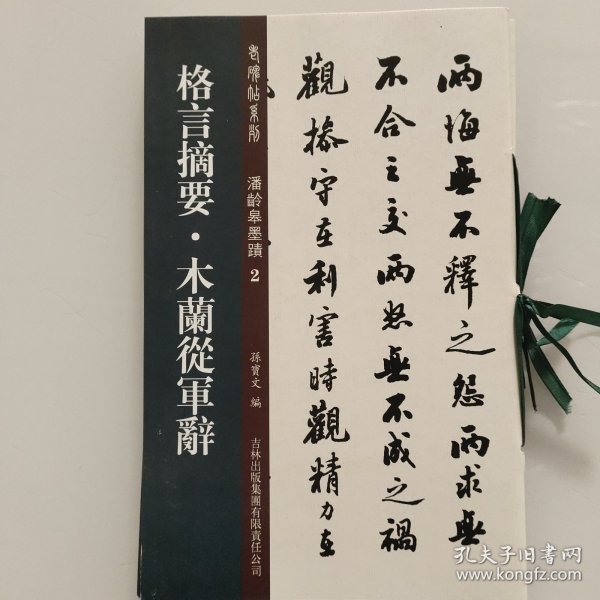 兩悔無不釋之怨兩求無
不合之交兩怒無不成之禍
觀操守在利害時觀精力在
老碑帖系列
潘齡皋墨蹟
2
孫寶文 編
吉林出版集團有限責任公司
格言摘要·木蘭從軍辭
孔夫子旧书网
www.kongfz.com